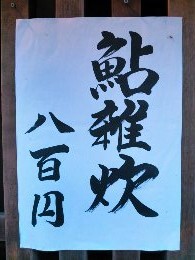 鮎雑炊
八百円